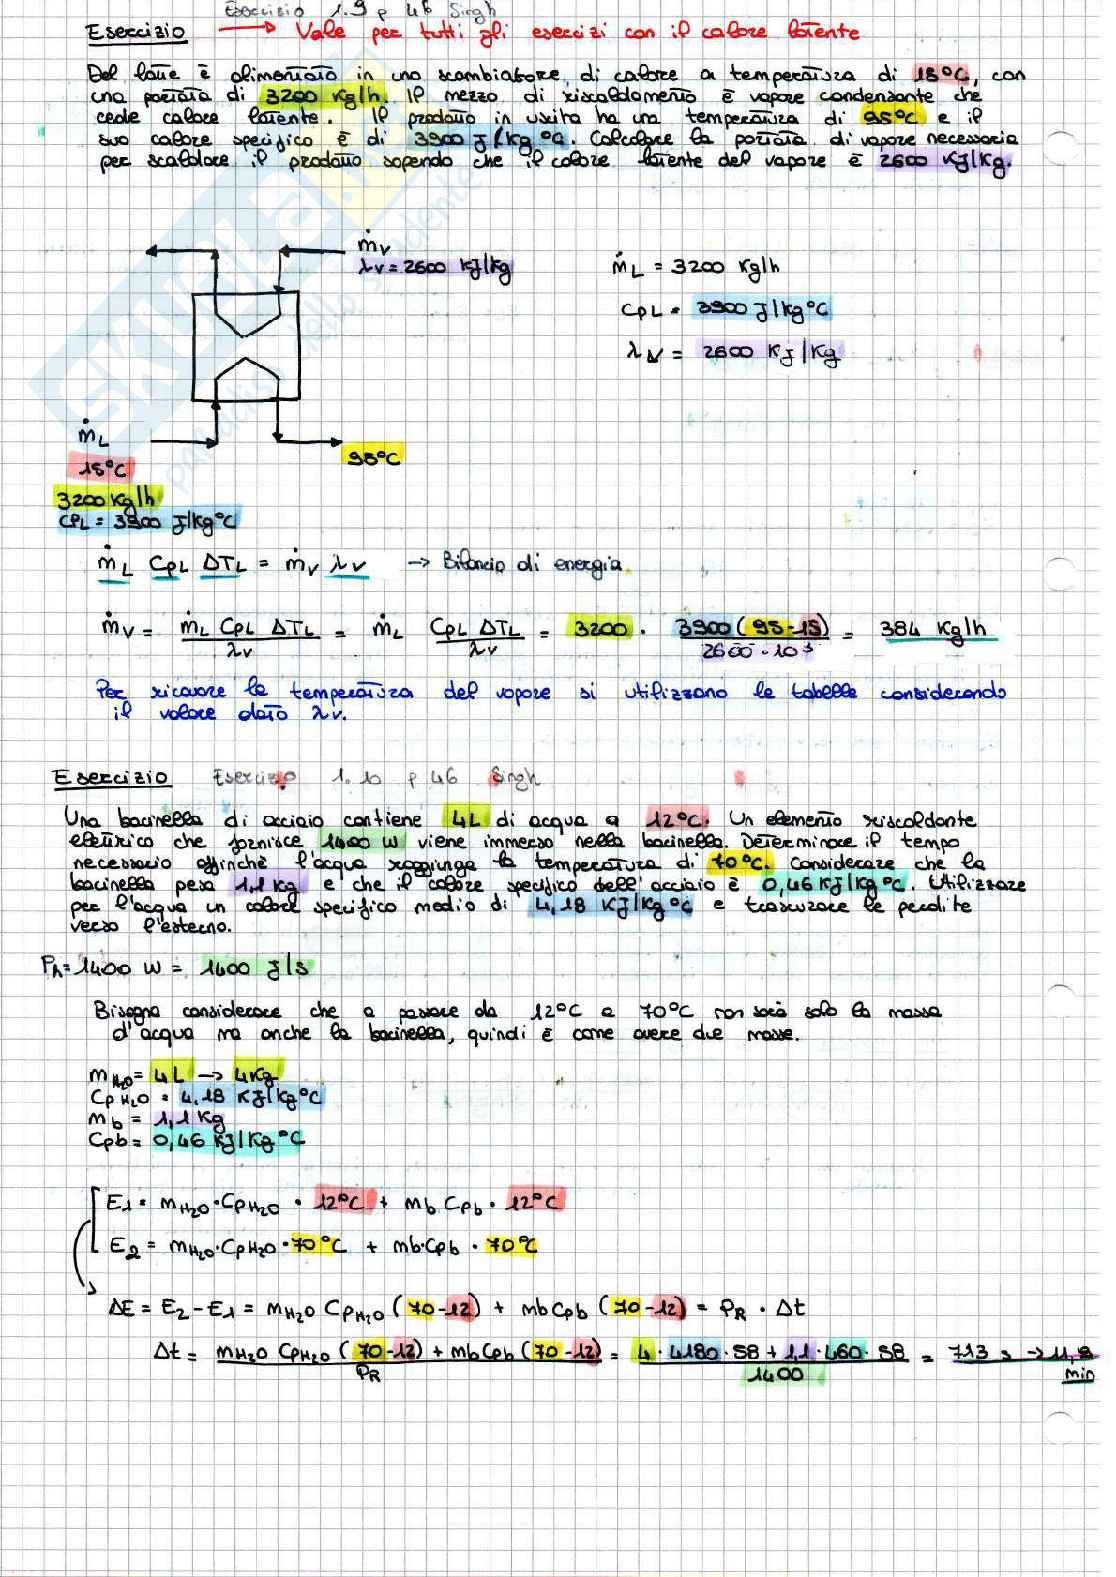 Esercizio 1.9 p 46 Singh
Esercizio → Vale per tutti gli esercizi con il calore latente
Del latte è alimentato in uno scambiatore di calore a temperatura di 15°C, con
una portata di 3200 Kg/h. Il mezzo di riscaldamento è vapore condensante che
cede calore latente. Il prodotto in uscita ha una temperatura di 95°C e il
suo calore specifico è di 3900 J/Kg °C. Calcolare la portata di vapore necessaria
per scaldare il prodotto sapendo che il calore latente del vapore è 2600 KJ/Kg.
ṁv
λv = 2600 KJ/Kg
ṁL = 3200 Kg/h
CpL = 3900 J/Kg°C
λv = 2600 KJ/Kg
ṁL
15°C
95°C
3200 Kg/h
CpL = 3900 J/Kg°C
ṁL CpL ΔTL = ṁv λv → Bilancio di energia
ṁv = ṁL CpL ΔTL / λv = ṁL CpL ΔTL / λv = 3200 · 3900 (95-15) / 2600 · 10³ = 384 Kg/h
Per ricavare la temperatura del vapore si utilizzano le tabelle considerando
il valore dato λv.
Esercizio Esercizio 1.10 p 46 Singh
Una bacinella di acciaio contiene 4L di acqua a 12°C. Un elemento riscaldante
elettrico che fornisce 1400 W viene immerso nella bacinella. Determinare il tempo
necessario affinchè l'acqua raggiunga la temperatura di 70°C. Considerare che la
bacinella pesa 1,1 Kg e che il calore specifico dell'acciaio è 0,46 KJ/Kg °C. Utilizzare
per l'acqua un calore specifico medio di 4,18 KJ/Kg °C e trascurare le perdite
verso l'esterno.
PR = 1400 W = 1400 J/s
Bisogna considerare che a passare da 12°C a 70°C non sarà solo la massa
d'acqua ma anche la bacinella, quindi è come avere due masse.
mH₂O = 4L → 4Kg
CpH₂O = 4.18 KJ/Kg°C
mb = 1,1 Kg
Cpb = 0,46 KJ/Kg °C
E1 = mH₂O · CpH₂O · 12°C + mb Cpb · 12°C
E2 = mH₂O · CpH₂O · 70°C + mb · Cpb · 70°C
ΔE = E2 - E1 = mH₂O CpH₂O (70-12) + mb Cpb (70-12) = PR · Δt
Δt = mH₂O CpH₂O (70-12) + mb Cpb (70-12) / PR = 4 · 4180 · 58 + 1,1 · 460 · 58 / 1400 = 713 s → 11,9 min